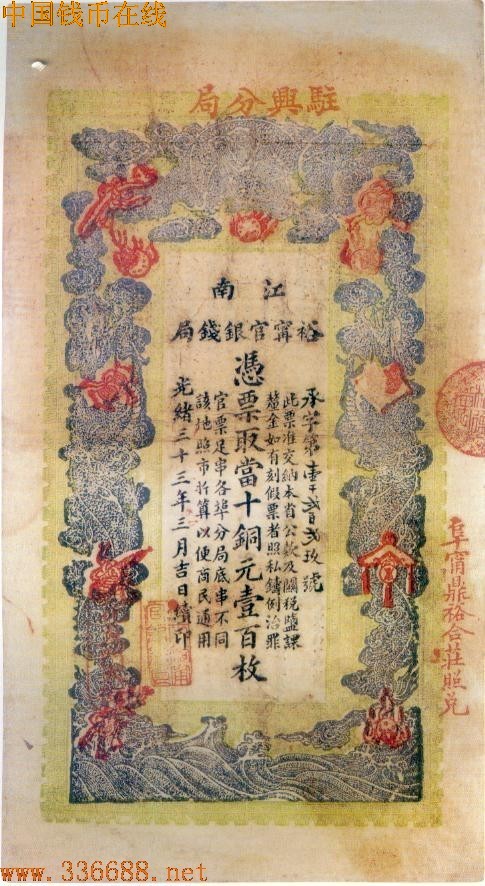 中国钱币在线
駐興分局
江南
裕甯官銀錢局
承字第壹千貳百貳玖號
此票准交納本省公款及關稅鹽課
釐金如有刻假票者照私鑄例治罪
憑票取當十銅元壹百枚
官票足串各埠分局底串不同
該地照市折算以便商民通用
光緒三十三年三月吉日續印
阜甯鼎裕合莊照兌
www.336688.net